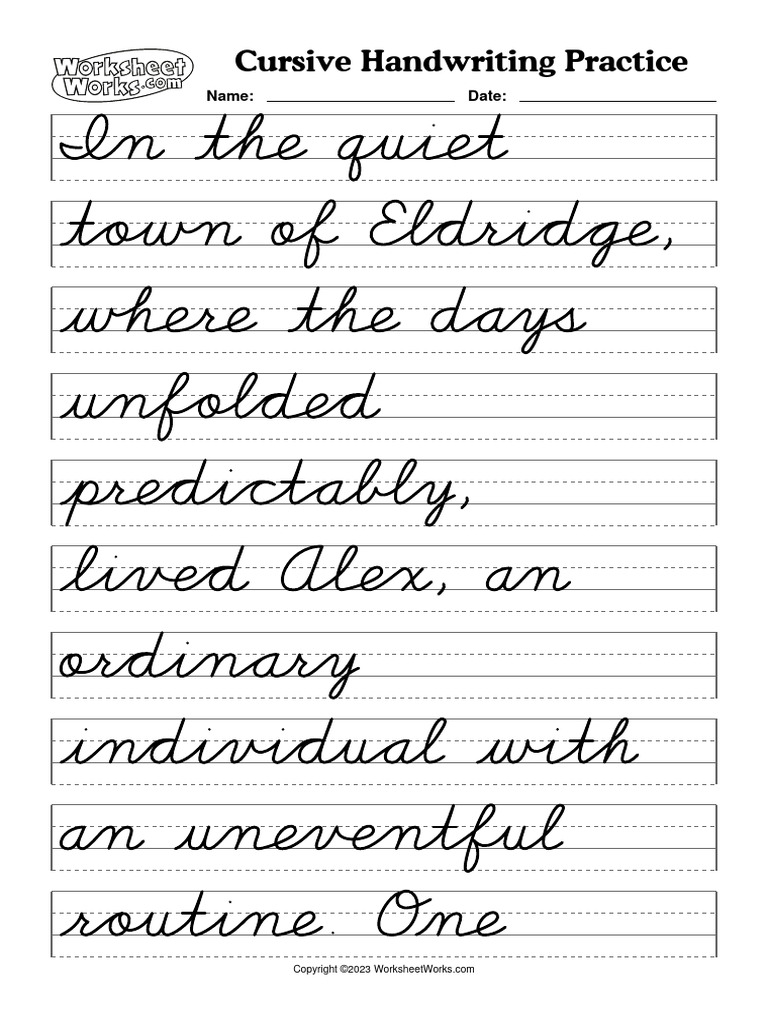 Worksheet
Works.com
Cursive Handwriting Practice
Name: Date:
In the quiet
town of Eldridge,
where the days
unfolded
predictably,
lived Alex, an
ordinary
individual with
an uneventful
routine. One
Copyright ©2023 WorksheetWorks.com